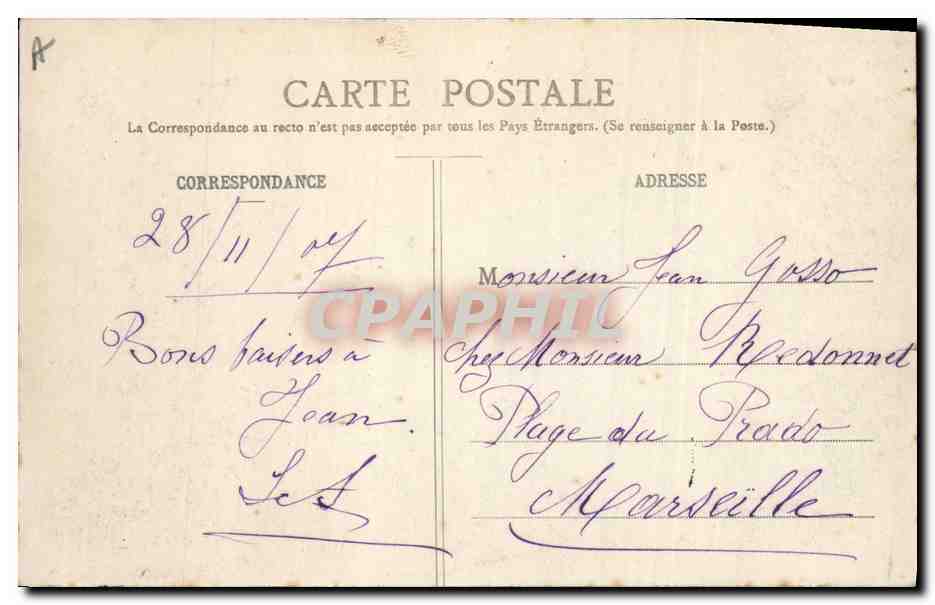 A
CARTE POSTALE
La Correspondance au recto n'est pas acceptée par tous les Pays Étrangers. (Se renseigner à la Poste.)
CORRESPONDANCE
28/11/07
Bons baisers à
Jean.
ADRESSE
Monsieur Jean Gosso
chez Monsieur Redonnet
Plage du Prado
Marseïlle
CPAPHIL